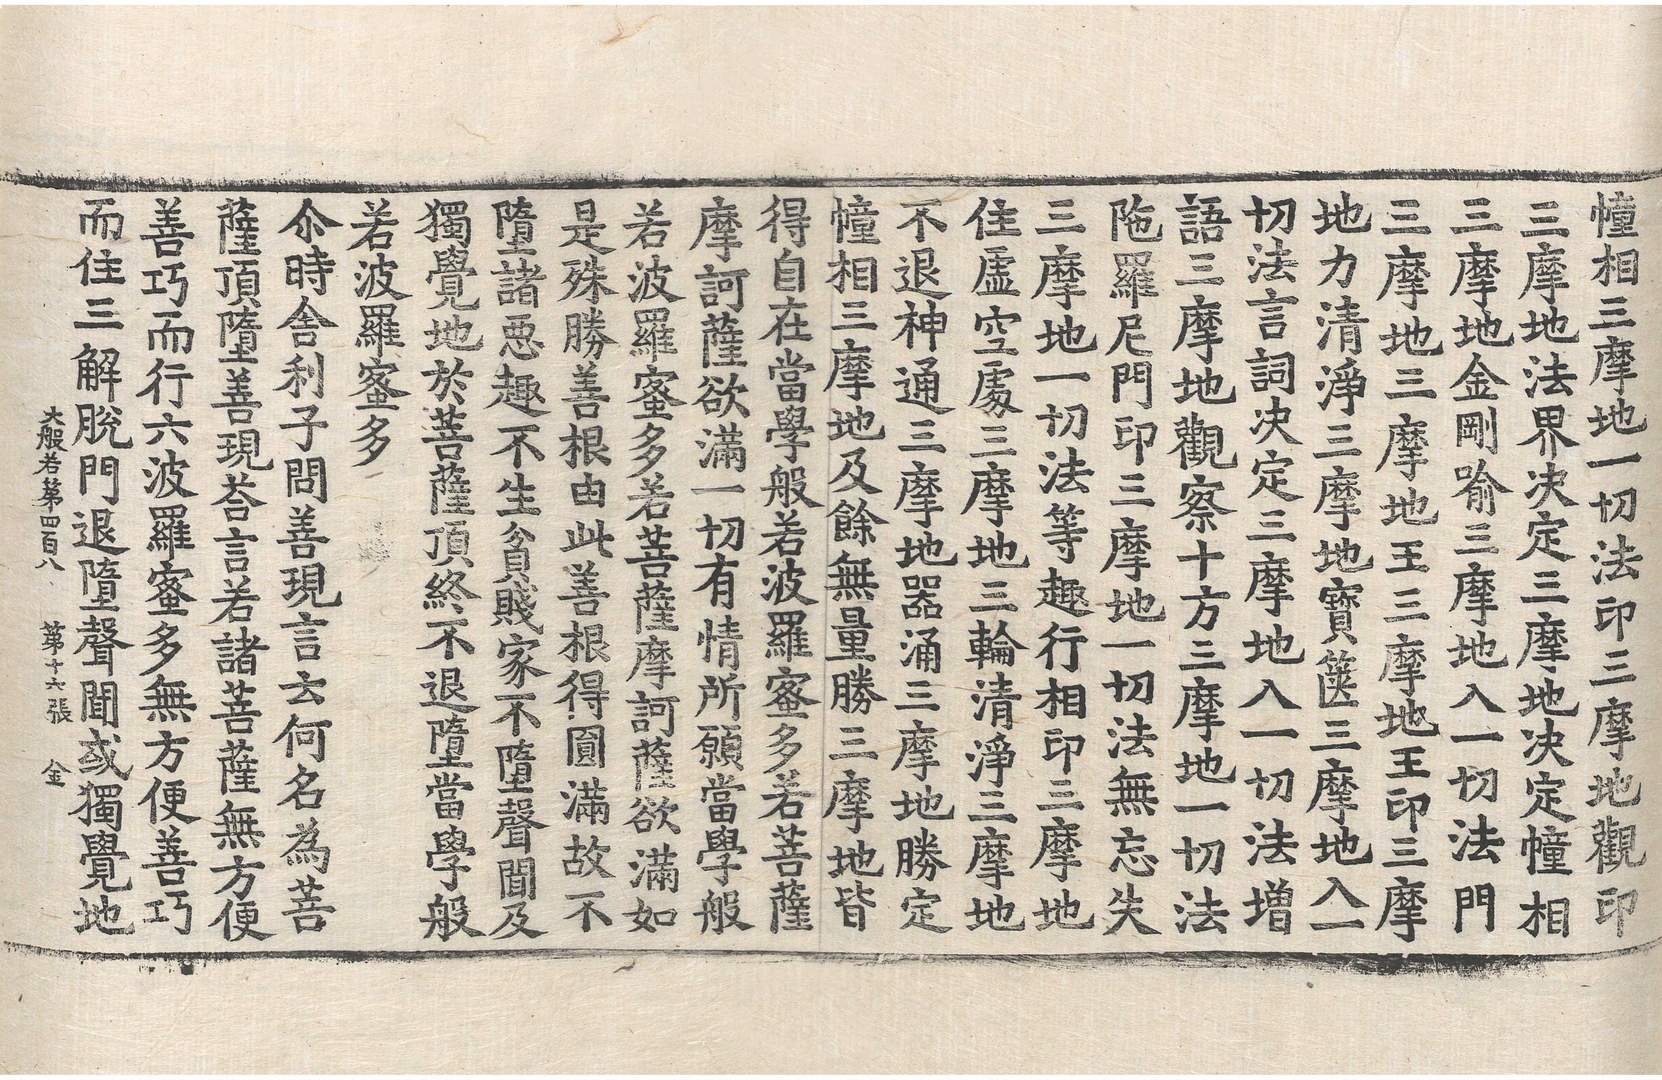 幢相三摩地一切法印三摩地觀印
三摩地法界决定三摩地决定幢相
三摩地金剛喻三摩地入一切法門
三摩地三摩地王三摩地王印三摩
地力清淨三摩地寶篋三摩地入一
切法言詞决定三摩地入一切法增
語三摩地觀察十方三摩地一切法
陁羅尼門印三摩地一切法無忘失
三摩地一切法等趣行相印三摩地
住虛空處三摩地三輪清淨三摩地
不退神通三摩地器涌三摩地勝定
幢相三摩地及餘無量勝三摩地皆
得自在當學般若波羅蜜多若菩薩
摩訶薩欲滿一切有情所願當學般
若波羅蜜多若菩薩摩訶薩欲滿如
是殊勝善根由此善根得圓滿故不
墮諸惡趣不生貧賤家不墮聲聞及
獨覺地於菩薩頂終不退墮當學般
若波羅蜜多
尒時舍利子問善現言云何名為菩
薩頂墮善現荅言若諸菩薩無方便
善巧而行六波羅蜜多無方便善巧
而住三解脫門退墮聲聞或獨覺地
大般若第四百八 第十六張 金